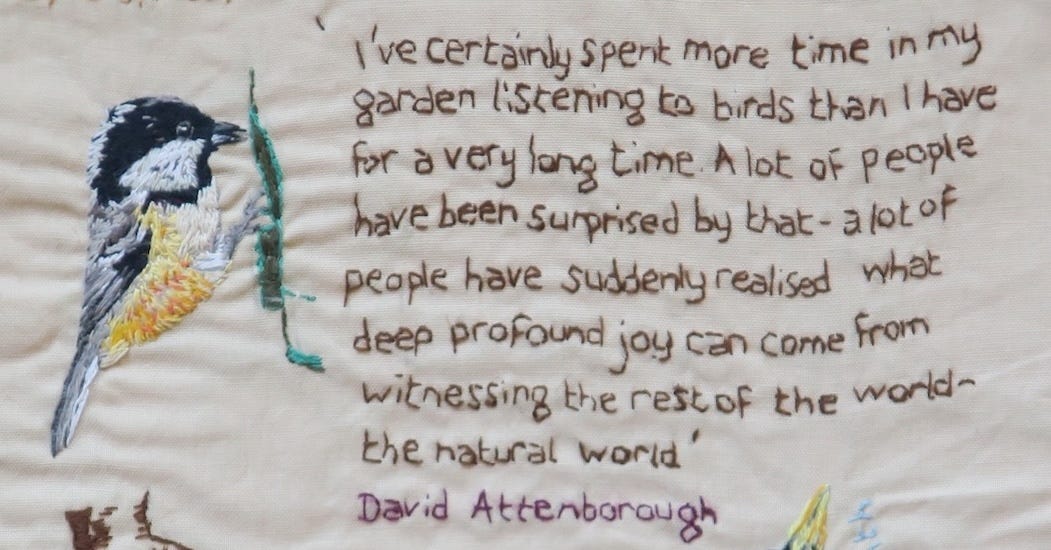 'I've certainly spent more time in my
garden listening to birds than I have
for a very long time. A lot of people
have been surprised by that - a lot of
people have suddenly realised what
deep profound joy can come from
witnessing the rest of the world-
the natural world'
David Attenborough